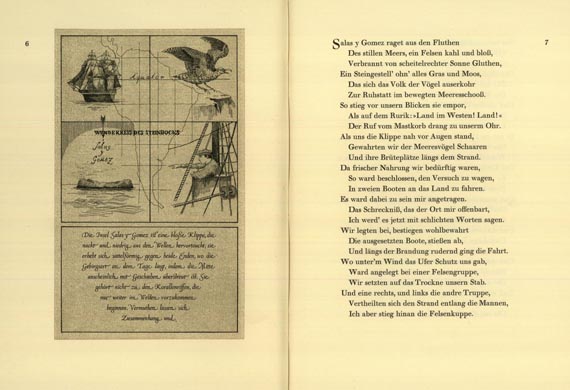 6
Äquator
WENDEKREIS DES STEINBOCKS
Salas y Gomez
Die Insel Salas y Gomez ist eine bloße Klippe, die
nackt und niedrig aus den Wellen hervortaucht; sie
erhebt sich sattelförmig gegen beide Enden, wo die
Gebirgsart an dem Tage liegt, indem die Mitte
anscheinlich mit Geschieben überstreut ist. Sie
gehört nicht zu den Korallenriffen, die
nur weiter im Westen vorzukommen
beginnen. Vermuthen lassen sich
Zusammenhang und
7
Salas y Gomez raget aus den Fluthen
Des stillen Meers, ein Felsen kahl und bloß,
Verbrannt von scheitelrechter Sonne Gluthen,
Ein Steingestell' ohn' alles Gras und Moos,
Das sich das Volk der Vögel auserkohr
Zur Ruhstatt im bewegten Meeresschooß.
So stieg vor unsern Blicken sie empor,
Als auf dem Rurik: »Land im Westen! Land!«
Der Ruf vom Mastkorb drang zu unserm Ohr.
Als uns die Klippe nah vor Augen stand,
Gewahrten wir der Meeresvögel Schaaren
Und ihre Brüteplätze längs dem Strand.
Da frischer Nahrung wir bedürftig waren,
So ward beschlossen, den Versuch zu wagen,
In zweien Booten an das Land zu fahren.
Es ward dabei zu sein mir angetragen.
Das Schreckniß, das der Ort mir offenbart,
Ich werd' es jetzt mit schlichten Worten sagen.
Wir legten bei, bestiegen wohlbewahrt
Die ausgesetzten Boote, stießen ab,
Und längs der Brandung rudernd ging die Fahrt.
Wo unter'm Wind das Ufer Schutz uns gab,
Ward angelegt bei einer Felsengruppe,
Wir setzten auf das Trockne unsern Stab.
Und eine rechts, und links die andre Truppe,
Vertheilten sich den Strand entlang die Mannen,
Ich aber stieg hinan die Felsenkuppe.